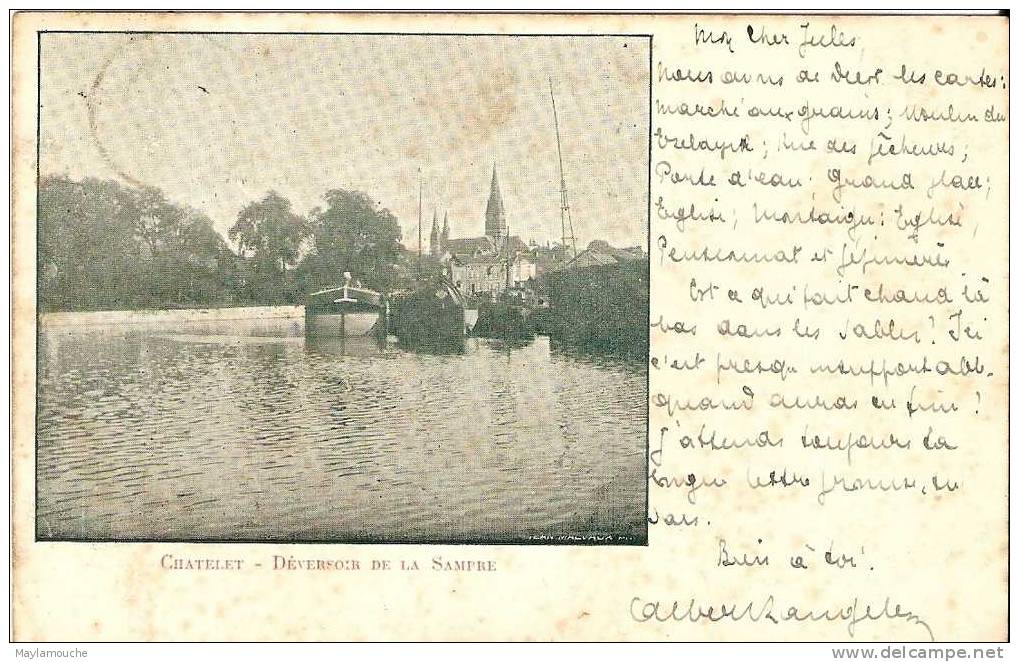 Mon Cher Jules,
Nous avons de Diest les cartes:
Marché aux grains; Moulin du
; Rue des pêcheurs;
Porte d'eau Grand place;
Eglise; Montaigu: Eglise,
Pensionnat et
Est ce qu'il fait chaud là
bas dans les sables? Ici
c'est presqu insupportabl.
quand auras en fin!
J'attends toujours ta
longue lettre promise, tu
sais.
Bien à toi.
Albert
JEAN MALVAUX
CHATELET - DÉVERSOIR DE LA SAMPRE
Maylamouche
www.delcampe.net